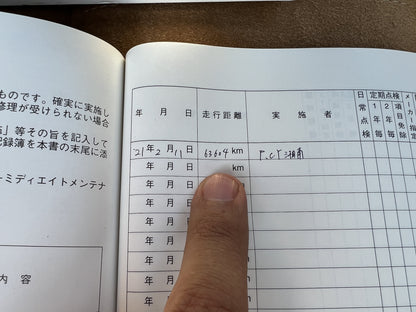 ものです。確実に実施し
修理が受けられない場合
」等その旨を記入して
記録簿を本書の末尾に添
ーミディエイトメンテナ
内 容
年 月 日
走行距離
実 施 者
日常点検
定期点検
1年毎
2年毎
項目免除
'21年 2月 11日 63604 km P.C.T 湘南
年 月 日 km
年 月 日
年 月 日
年 月 日
年 月 日
年 月 日
年 月 日